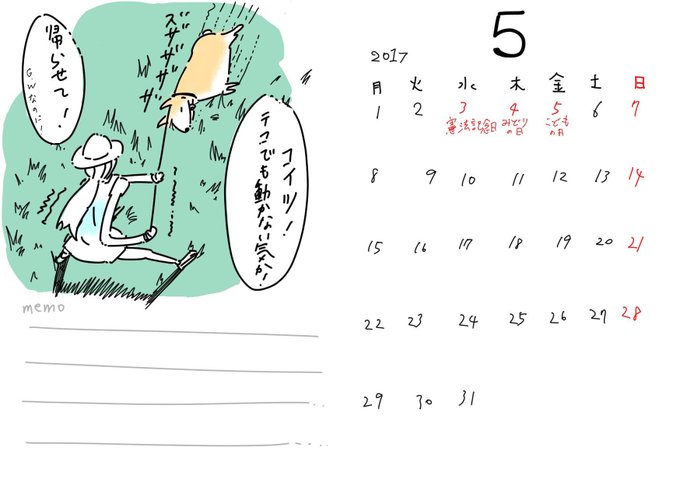 帰らせて!
GWなのに!
ズザザザザザ
コイツ!
テコでも動かない気か!
memo
5
2017
月 火 水 木 金 土 日
1 2 3 4 5 6 7
憲法記念日 みどりの日 こどもの日
8 9 10 11 12 13 14
15 16 17 18 19 20 21
22 23 24 25 26 27 28
29 30 31